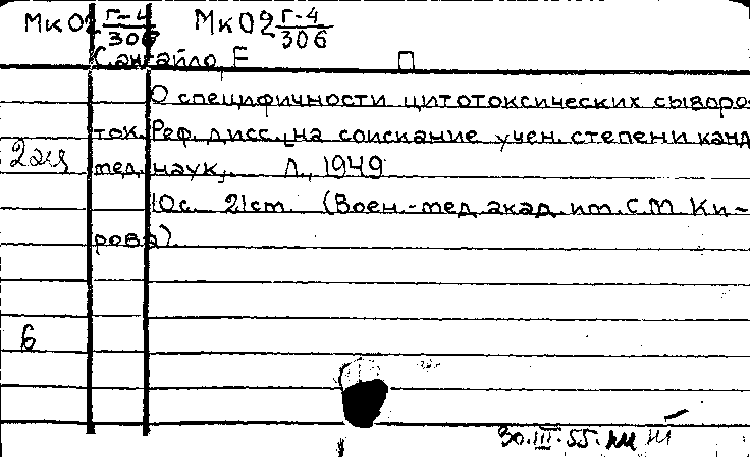 МкО2 Г-4/306 МкО2 Г-4/306
Сангайло, Е П
О специфичности цитотоксических сыворо-
ток. Реф. дисс. на соискание учен. степени канд.
2 экз
мед. наук, Л., 1949
10с. 21см. (Воен.-мед. акад. им. С.М. Ки-
рова).
6
30.III.55.